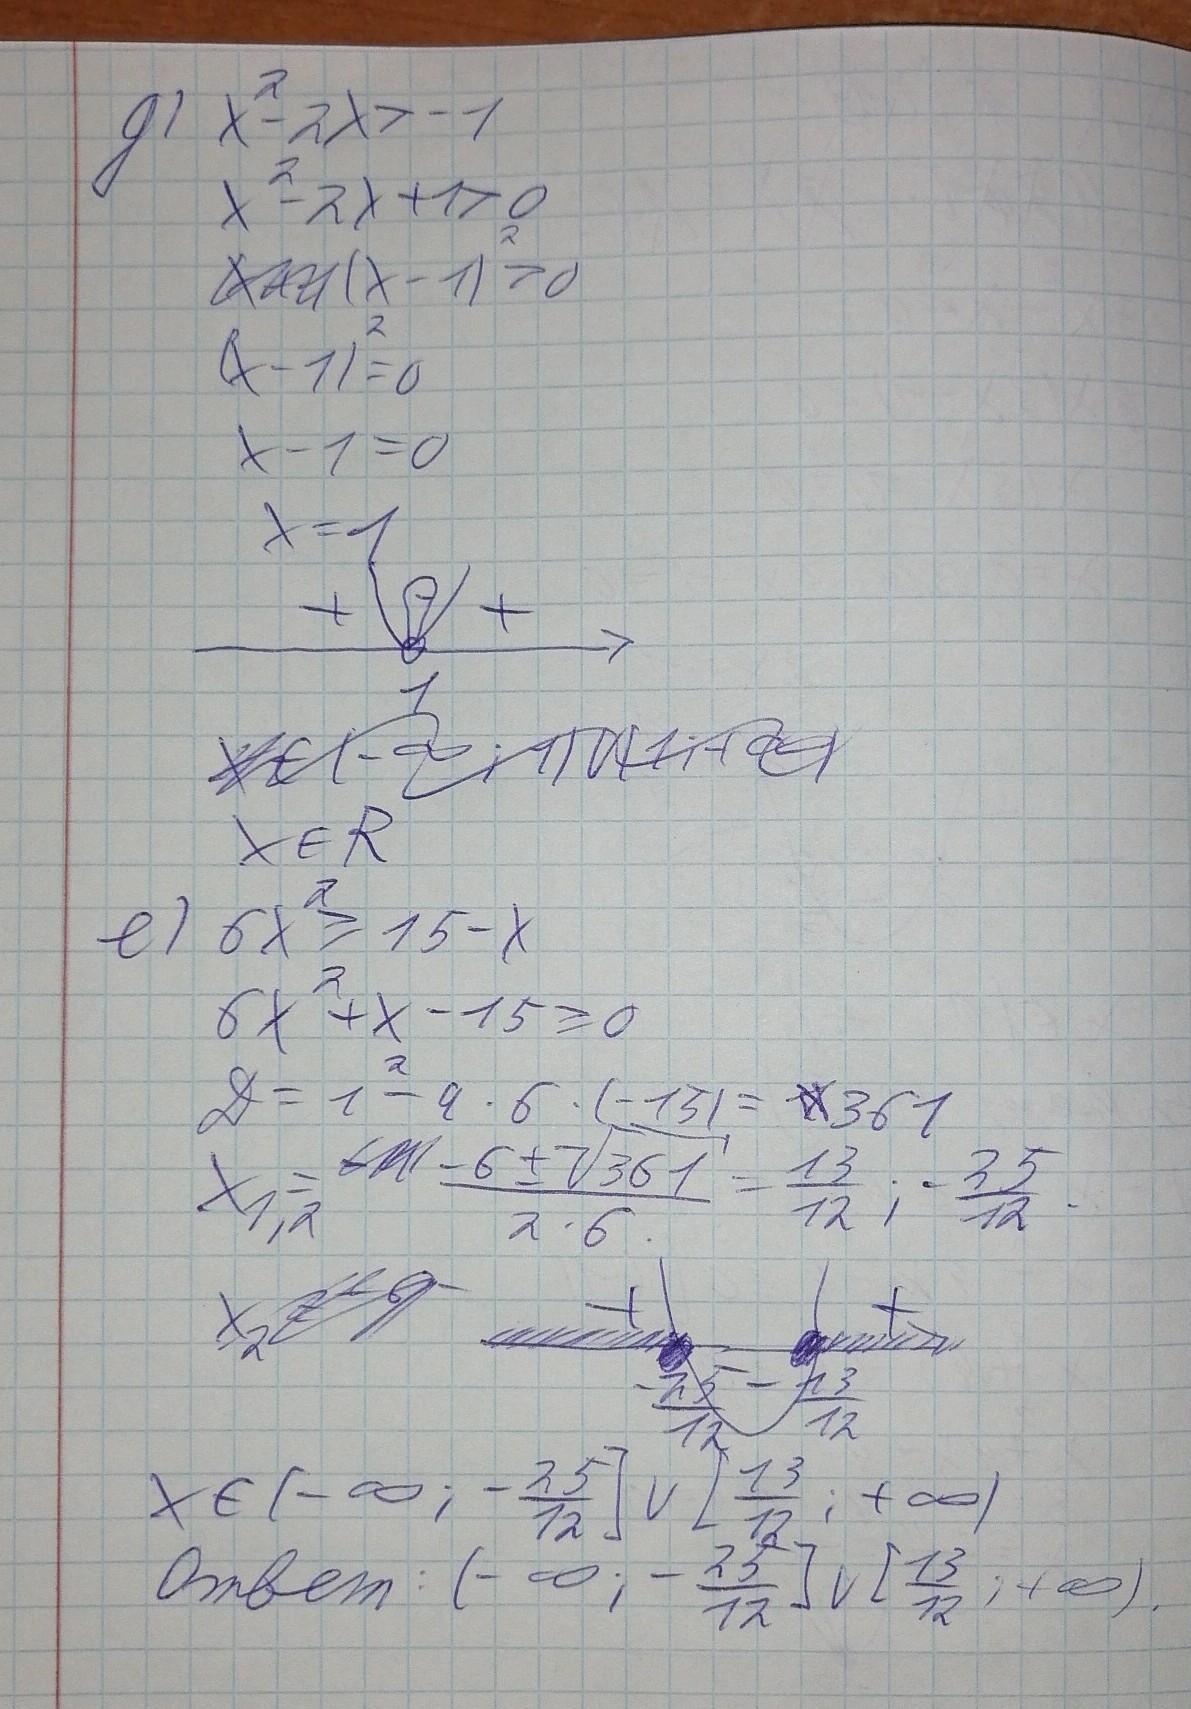 д) x² - 2x > -1
x² - 2x + 1 > 0
(x - 1)² > 0
(x - 1)² = 0
x - 1 = 0
x = 1
+ +
1
x ∈ R
е) 6x² ≥ 15 - x
6x² + x - 15 ≥ 0
D = 1² - 4 · 6 · (-15) = 361
x1,2 = (-6 ± √361)/(2 · 6) = 13/12 ; -25/12.
x2
+ - +
-25/12 13/12
x ∈ (-∞ ; -25/12] ∪ [13/12 ; +∞)
Ответ: (-∞ ; -25/12] ∪ [13/12 ; +∞).